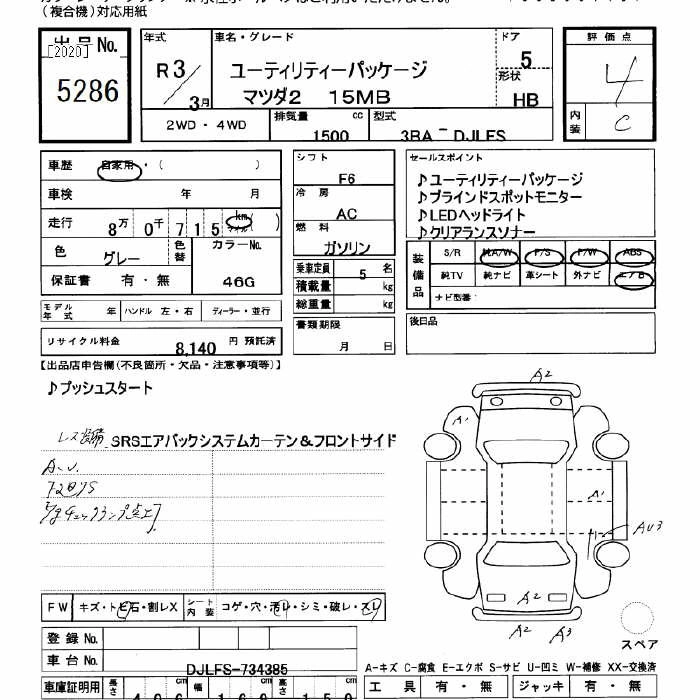 (複合機)対応用紙
出品No.
[2020]
5286
年式
R3/3月
車名・グレード
ユーティリティーパッケージ
マツダ2 15MB
ドア
5
形状
HB
評価点
4
内装
C
2WD・4WD
排気量
1500 cc
型式
3BA-DJLFS
車歴 自家用・( )
車検 年 月
走行 8万 0千 7 1 5 km
色 グレー
色替
カラーNo.
46G
保証書 有・無
モデル年式 年 ハンドル 左・右 ディーラー・並行
リサイクル料金 8,140 円 預託済
シフト
F6
冷房
AC
燃料
ガソリン
乗車定員 5 名
積載量 kg
総重量 kg
書類期限
月 日
セールスポイント
♪ユーティリティーパッケージ
♪ブラインドスポットモニター
♪LEDヘッドライト
♪クリアランスソナー
装備品
S/R 純A/W P/S P/W ABS
純TV 純ナビ 革シート 外ナビ エアB
ナビ型番:
後日品
【出品店申告欄(不良箇所・欠品・注意事項等)】
♪プッシュスタート
SRSエアバックシステムカーテン&フロントサイド
A2
A1
A1
AU3
A2
A2
A2 A3
スペア
FW キズ・トビ石・割レX シート内装 コゲ・穴・汚レ・シミ・破レ・スレ
登録No.
車台No.
DJLFS-734385
A-キズ C-腐食 E-エクボ S-サビ U-凹ミ W-補修 XX-交換済
車庫証明用 長さ 406 幅 169 高さ 150
工具 有・無 ジャッキ 有・無